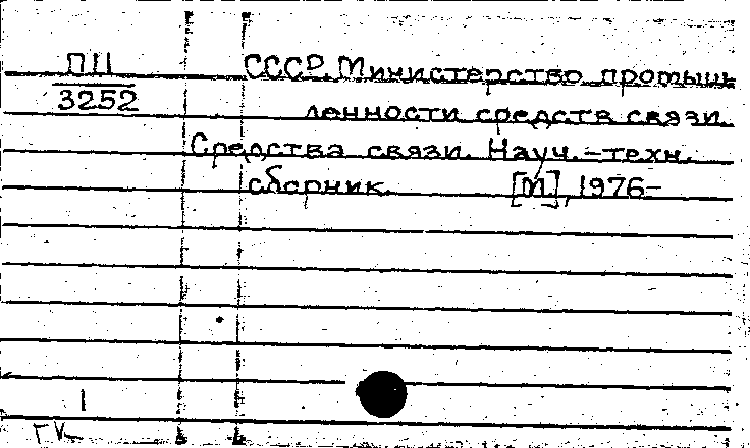 П11 СССР. Министерство промыш
3252 ленности средств связи.
Средства связи. Науч.-техн.
сборник. [М], 1976-
1
ГК